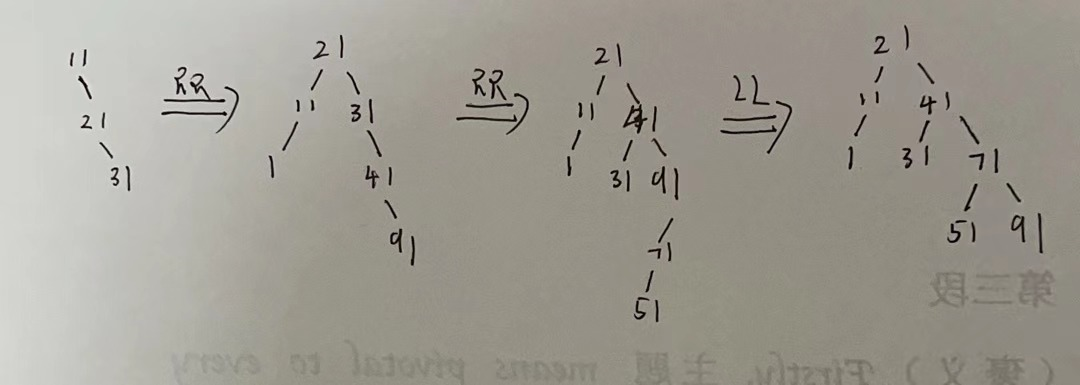 11
21
31
RR
21
11 31
1 41
91
RR
21
11 41
1 31 91
71
51
LL
21
11 41
1 31 71
51 91
第三段
（褒义）Firstly, 主题 means pivotal to every